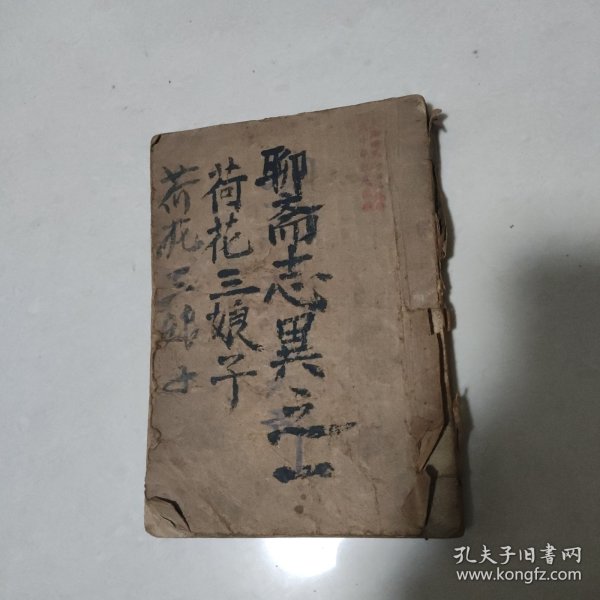 聊斋志異之一
荷花三娘子
荷花三娘子
孔夫子旧书网
www.kongfz.com